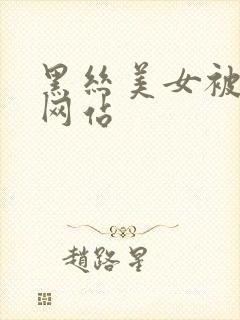 黑丝美女被
网站
趙路星